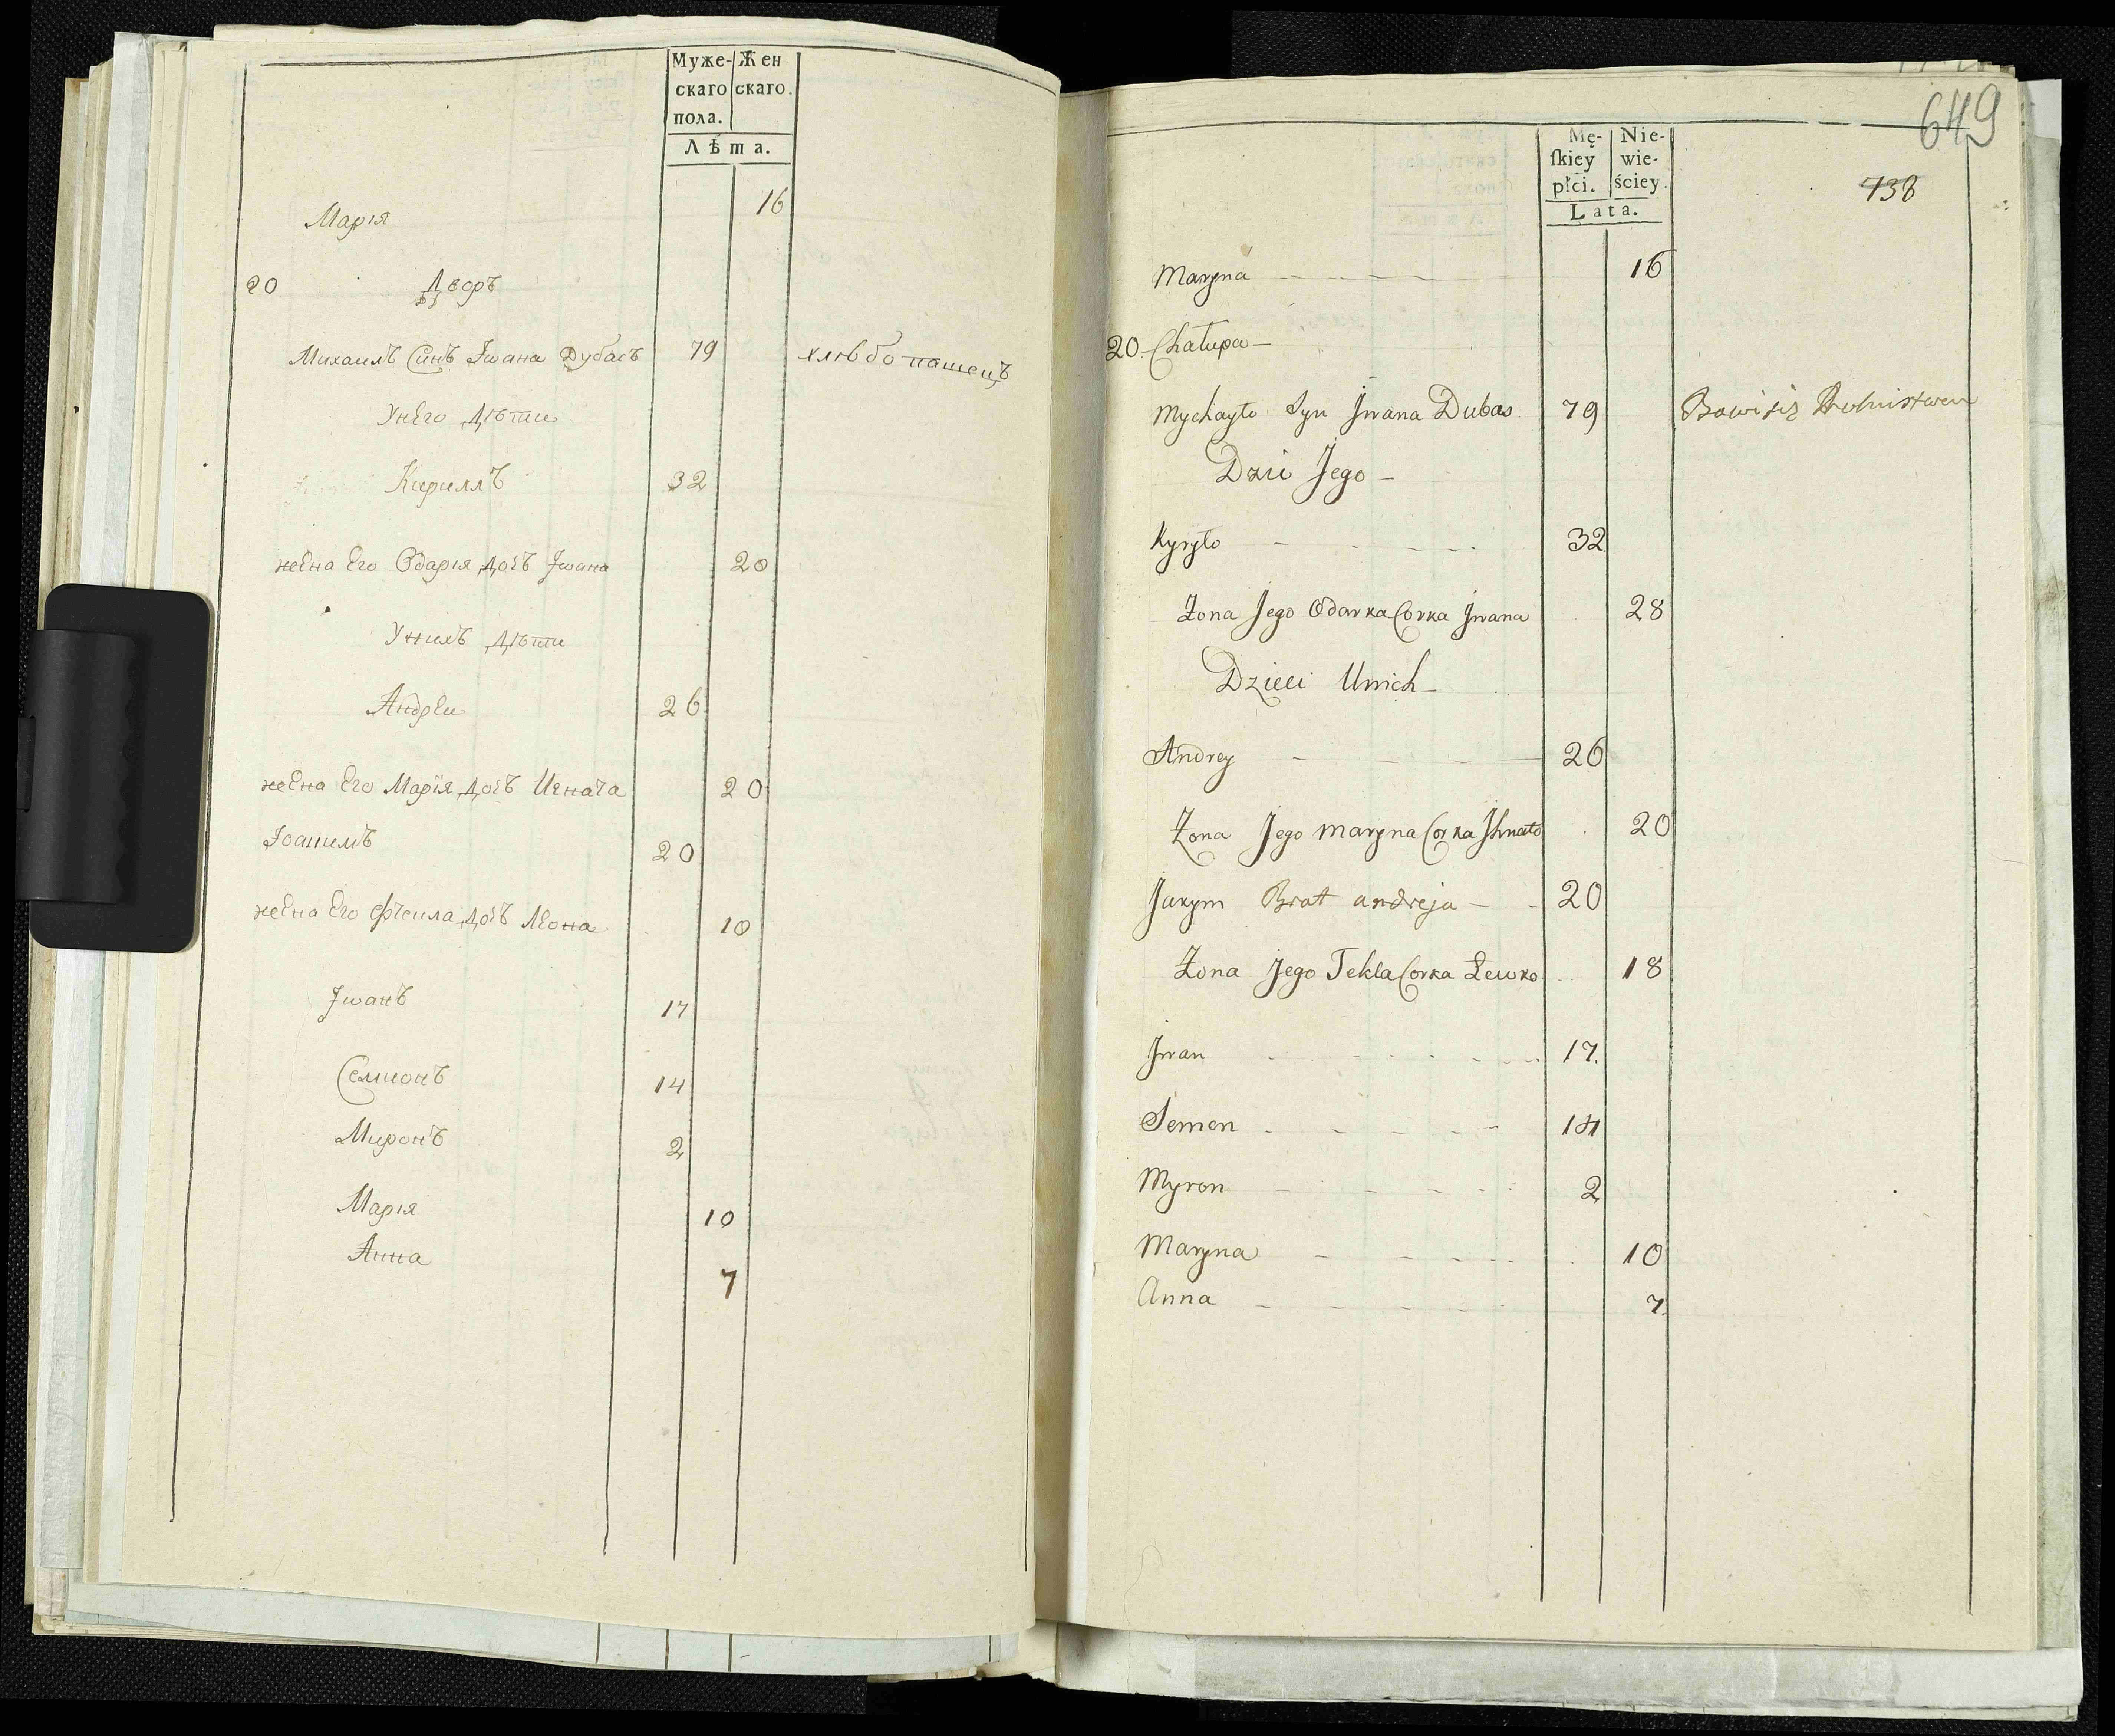 Муже- Жен
скаго скаго.
пола.
Лѣта.
Марія 16
20 Дворъ
Михаилъ Синъ Івана Дубасъ 79 хлѣбопашецъ
Унего Дѣти
Кириллъ 32
жена Его Одарія дочъ Івана 20
Унихъ дѣти
Андреи 26
жена Его Марія дочъ Игната 20
Іоакимъ 20
жена Его Фтекла дочъ Леона 10
Іванъ 17
Семионъ 14
Миронъ 2
Марія 10
Анна 7
649
738
Mę- Nie-
ſkiey wie-
płci. ściey.
Lata.
Maryna 16
20. Chałupa
Mychayło Syn Jwana Dubas 79 Bawi się Rolnistwem
Dzici Jego
Kyryło 32
Żona Jego Odarka Corka Jwana 28
Dzieci Unich
Andrey 26
Żona Jego Maryna Corka Jhnata 20
Jakym Brat andreja 20
Żona Jego Tekla Corka Lewko 18
Jwan 17.
Semen 14
Myron 2
Maryna 10
Anna 7.